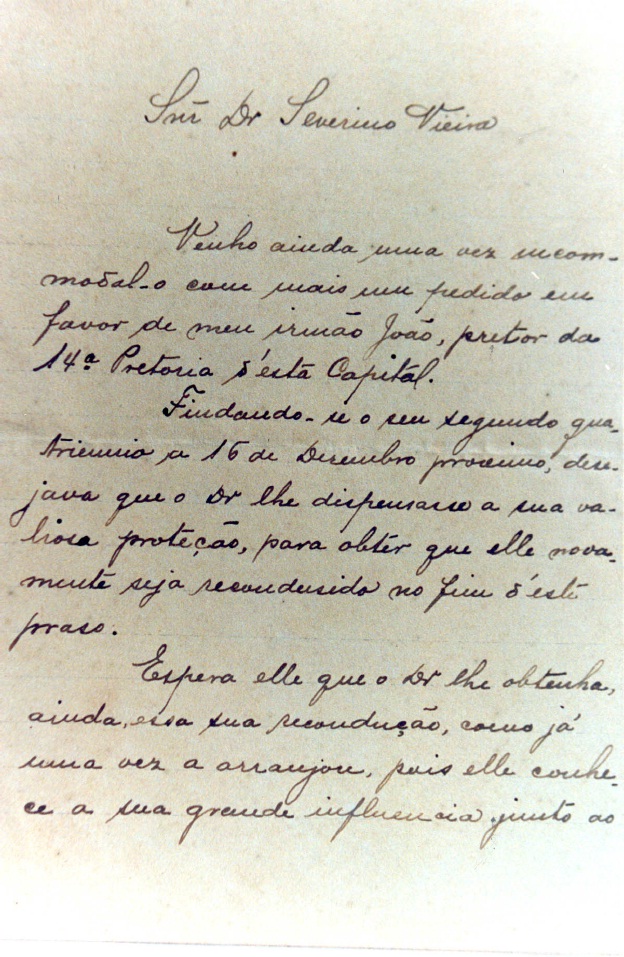 Snr Dr Severino Vieira
Venho ainda uma vez incom-
modal-o com mais um pedido em
favor de meu irmão João, pretor da
14ª Pretoria d'esta Capital.
Findando-se o seu segundo qua-
triennio a 16 de Dezembro proximo, dese-
java que o Dr lhe dispensasse a sua va-
liosa proteção, para obter que elle nova-
mente seja recondusido no fim d'este
praso.
Espera elle que o Dr lhe obtenha,
ainda, essa sua recondução, como já
uma vez a arranjou, pois elle conhe-
ce a sua grande influencia junto ao